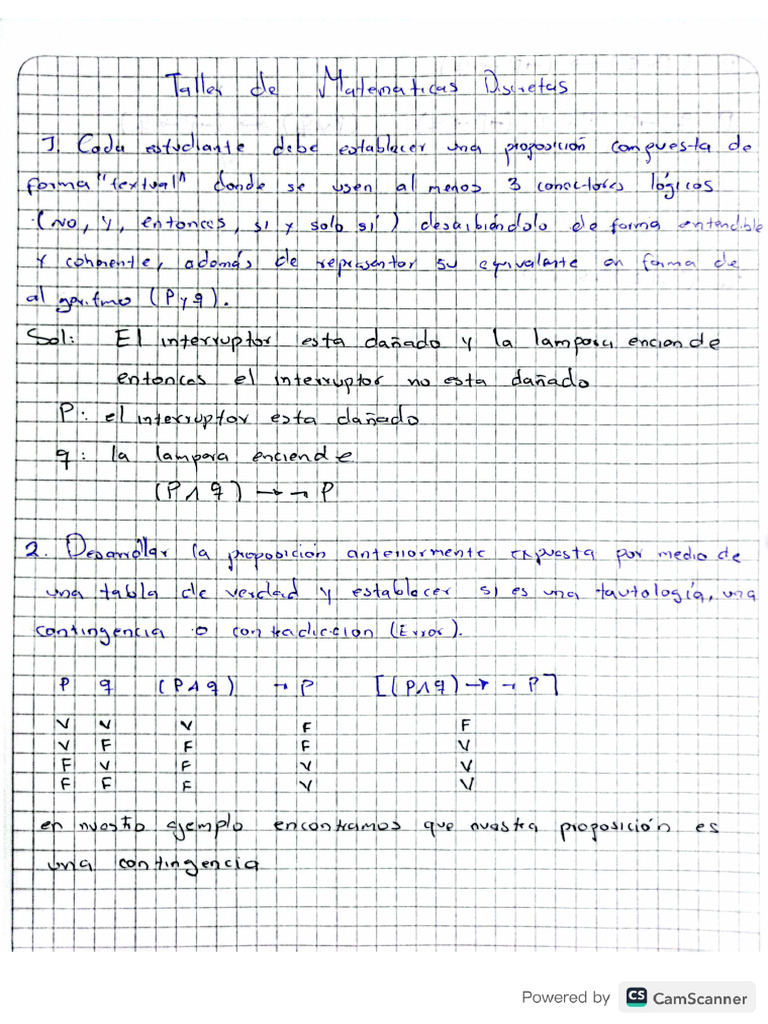 Taller de Matematicas Discretas
1. Cada estudiante debe establecer una proposición compuesta de
forma "textual" donde se usen al menos 3 conectores lógicos
(No, y, entonces, si y solo sí) describiéndolo de forma entendible
y coherente, además de representar su equivalente en forma de
algoritmo (P y q).
Sol: El interruptor esta dañado y la lampara enciende
entonces el interruptor no esta dañado
P: el interruptor esta dañado
q: la lampara enciende
(P ∧ q) → ¬ P
2. Desarrollar la proposición anteriormente expuesta por medio de
una tabla de verdad y establecer si es una tautología, una
contingencia o contradiccion (Error).
P q (P ∧ q) ¬ P [(P ∧ q) → ¬ P]
V V V F F
V F F F V
F V F V V
F F F V V
en nuestro ejemplo encontramos que nuestra proposición es
una contingencia
Powered by CS CamScanner